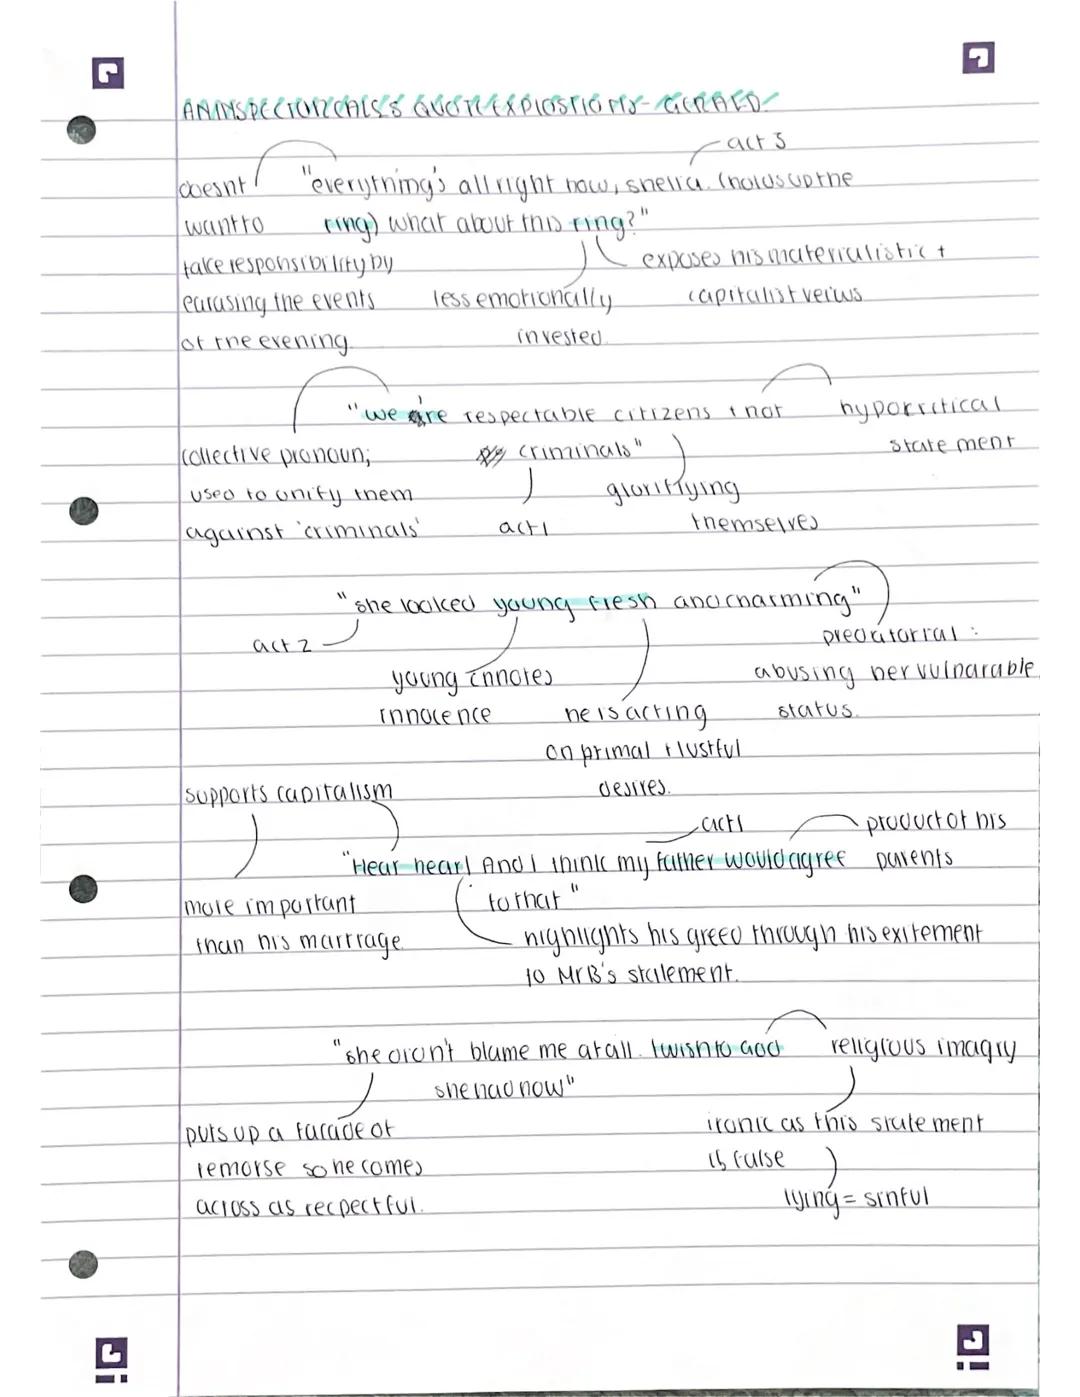 AN INSPECTOR CALLS QUOTE EXPLOSTIONS - GERALD
act 3
doesnt "everything's all right now, sheila. (holds up the
want to ring) what about this ring?"
take responsibility by exposes his materialistic +
earasing the events less emotionally capitalist veiws
of the evening. invested.
"we are respectable citizens + not hyporritical
collective pronoun; criminals" state ment
used to unify them gloriftlying
against 'criminals' act 1 themselves
"she looked young fresh and charming"
act 2 predatorial :
young innotes abusing her vulnarable
innocence he is acting status.
on primal + lustful
supports capitalism desires.
act 1 product of his
"Hear hear! And I think my father would agree parents
more important to that"
than his marriage. highlights his greed through his exitement
to Mr B's statement.
"she didn't blame me at all. I wish to God religious imagry
she had now"
puts up a facade of ironic as this state ment
remorse so he comes is false
across as recpectful. lying = sinful